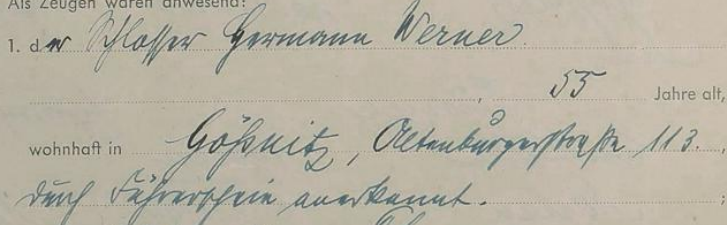 Als Zeugen waren anwesend:
1. der Schlosser Hermann Werner
, 55 Jahre alt,
wohnhaft in Gößnitz, Altenburgerstraße 113.,
durch Führerschein anerkannt. ;